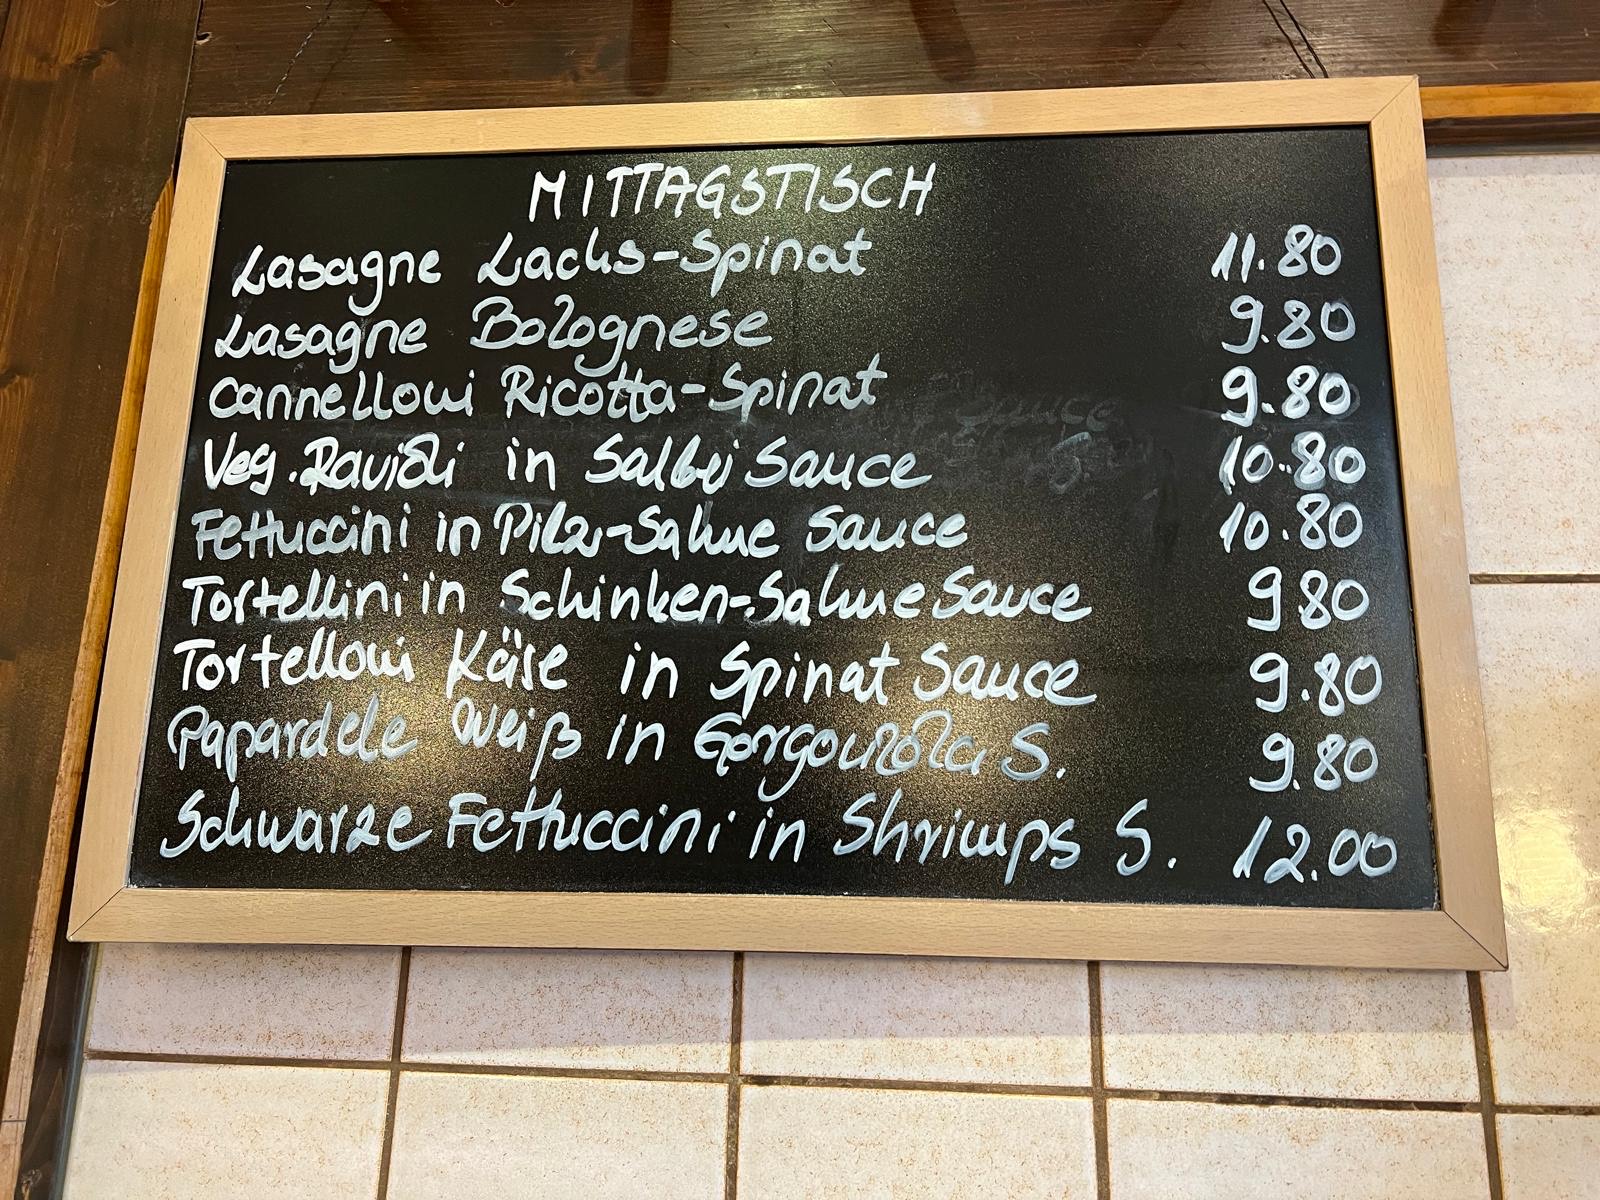 MITTAGSTISCH
Lasagne Lachs-Spinat 11.80
Lasagne Bolognese 9.80
Cannelloni Ricotta-Spinat 9.80
Veg. Ravioli in Salbei Sauce 10.80
Fettuccini in Pilz-Sahne Sauce 10.80
Tortellini in Schinken-Sahne Sauce 9.80
Tortelloni Käse in Spinat Sauce 9.80
Papardele Weiß in Gorgonzola S. 9.80
Schwarze Fettuccini in Shrimps S. 12.00